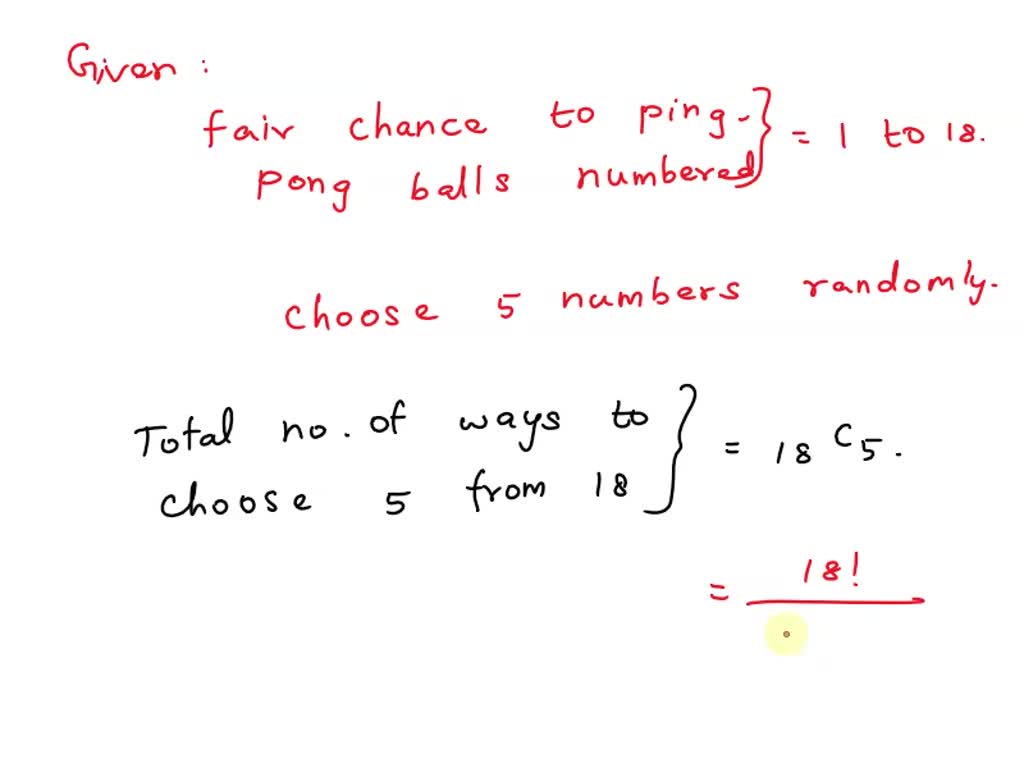 Given :
fair chance to ping-
pong balls numbered } = 1 to 18.
choose 5 numbers randomly.
Total no. of ways to
choose 5 from 18 } = 18 C 5.
= 18!